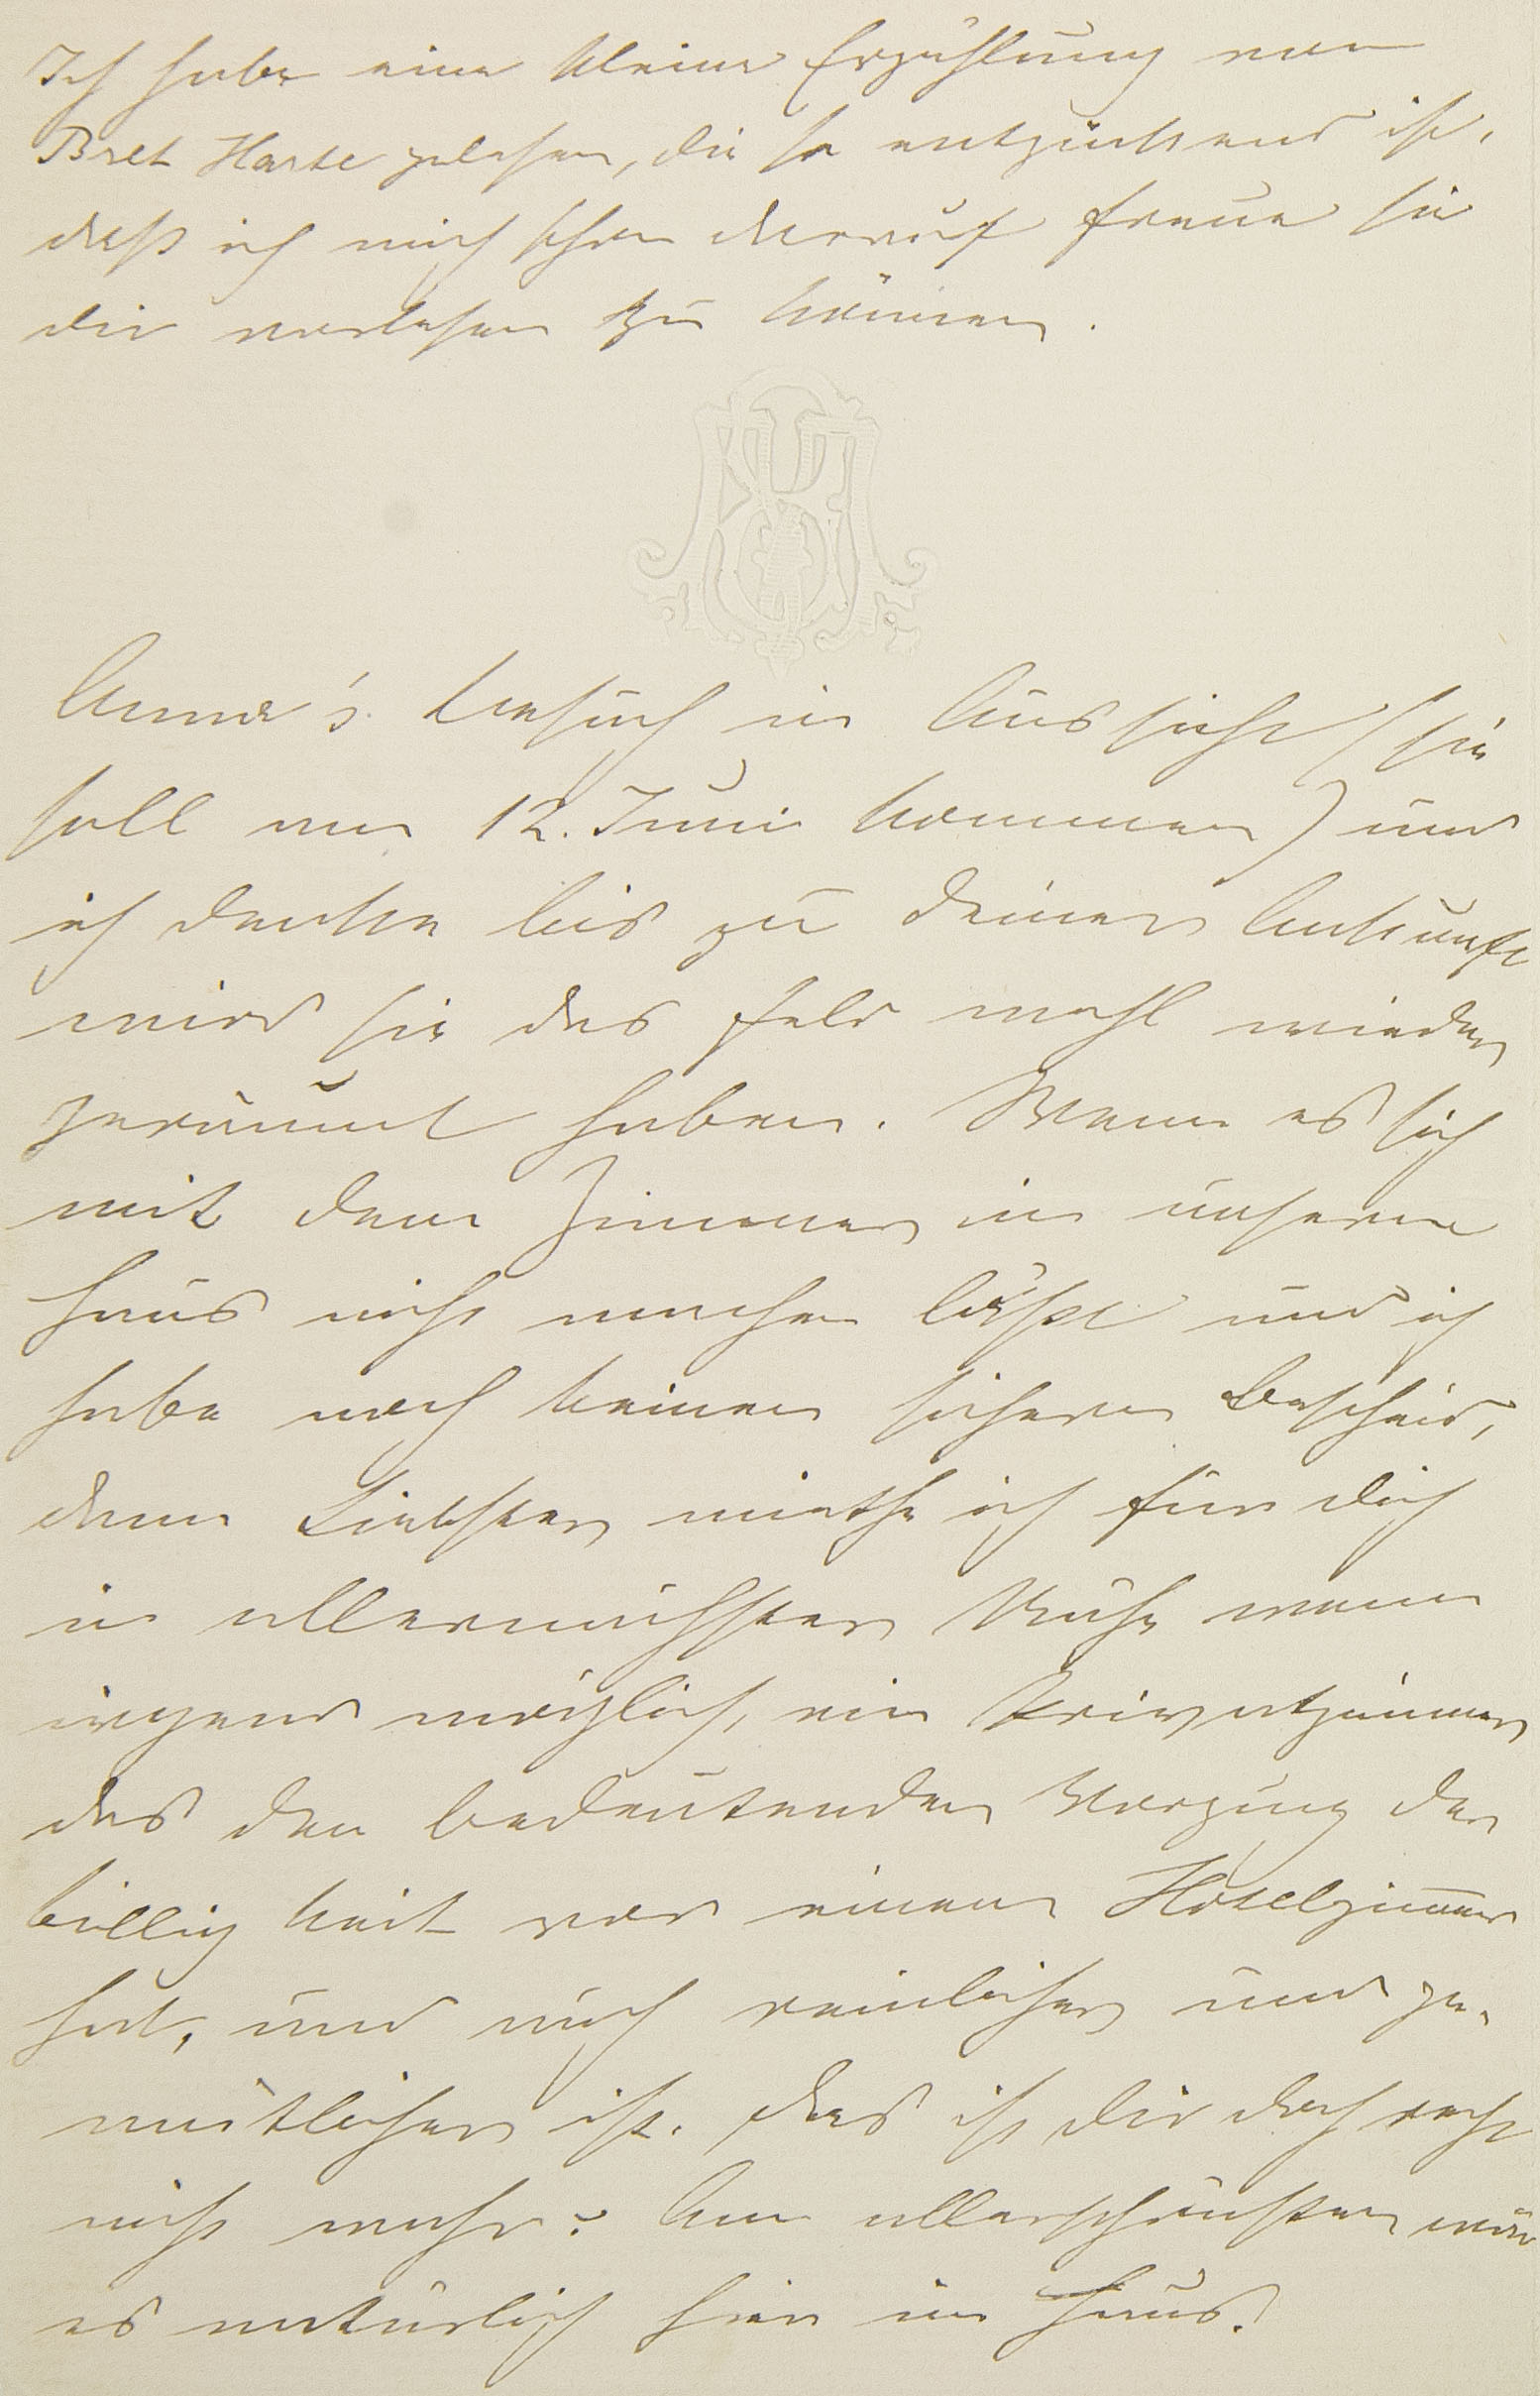 Ich habe eine kleine Erzählung von
Bret Harte gelesen, die so entzückend ist,
daß ich mich schon darauf freue sie
dir vorlesen zu können.
Anna's Besuch in Aussicht (sie
soll am 12. Juni kommen) und
ich denke bis zu deiner Ankunft
wird sie das Feld wohl wieder
geräumt haben. Wenn es sich
mit dem Zimmer in unserem
Haus nicht machen läßt und ich
habe noch keinen sichern Bescheid,
dann Liebster miethe ich für dich
in allernächster Nähe wenn
irgend möglich, ein Privatzimmer
das den bedeutenden Vorzug der
Billigkeit vor einem Hotelzimmer
hat, und auch reinlicher und ge-
mütlicher ist. Das ist dir doch recht
nicht wahr? Am allerschönsten wär
es natürlich hier im Haus.